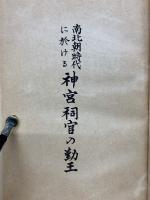 南北朝時代
に於ける
神宮祠官の勤王